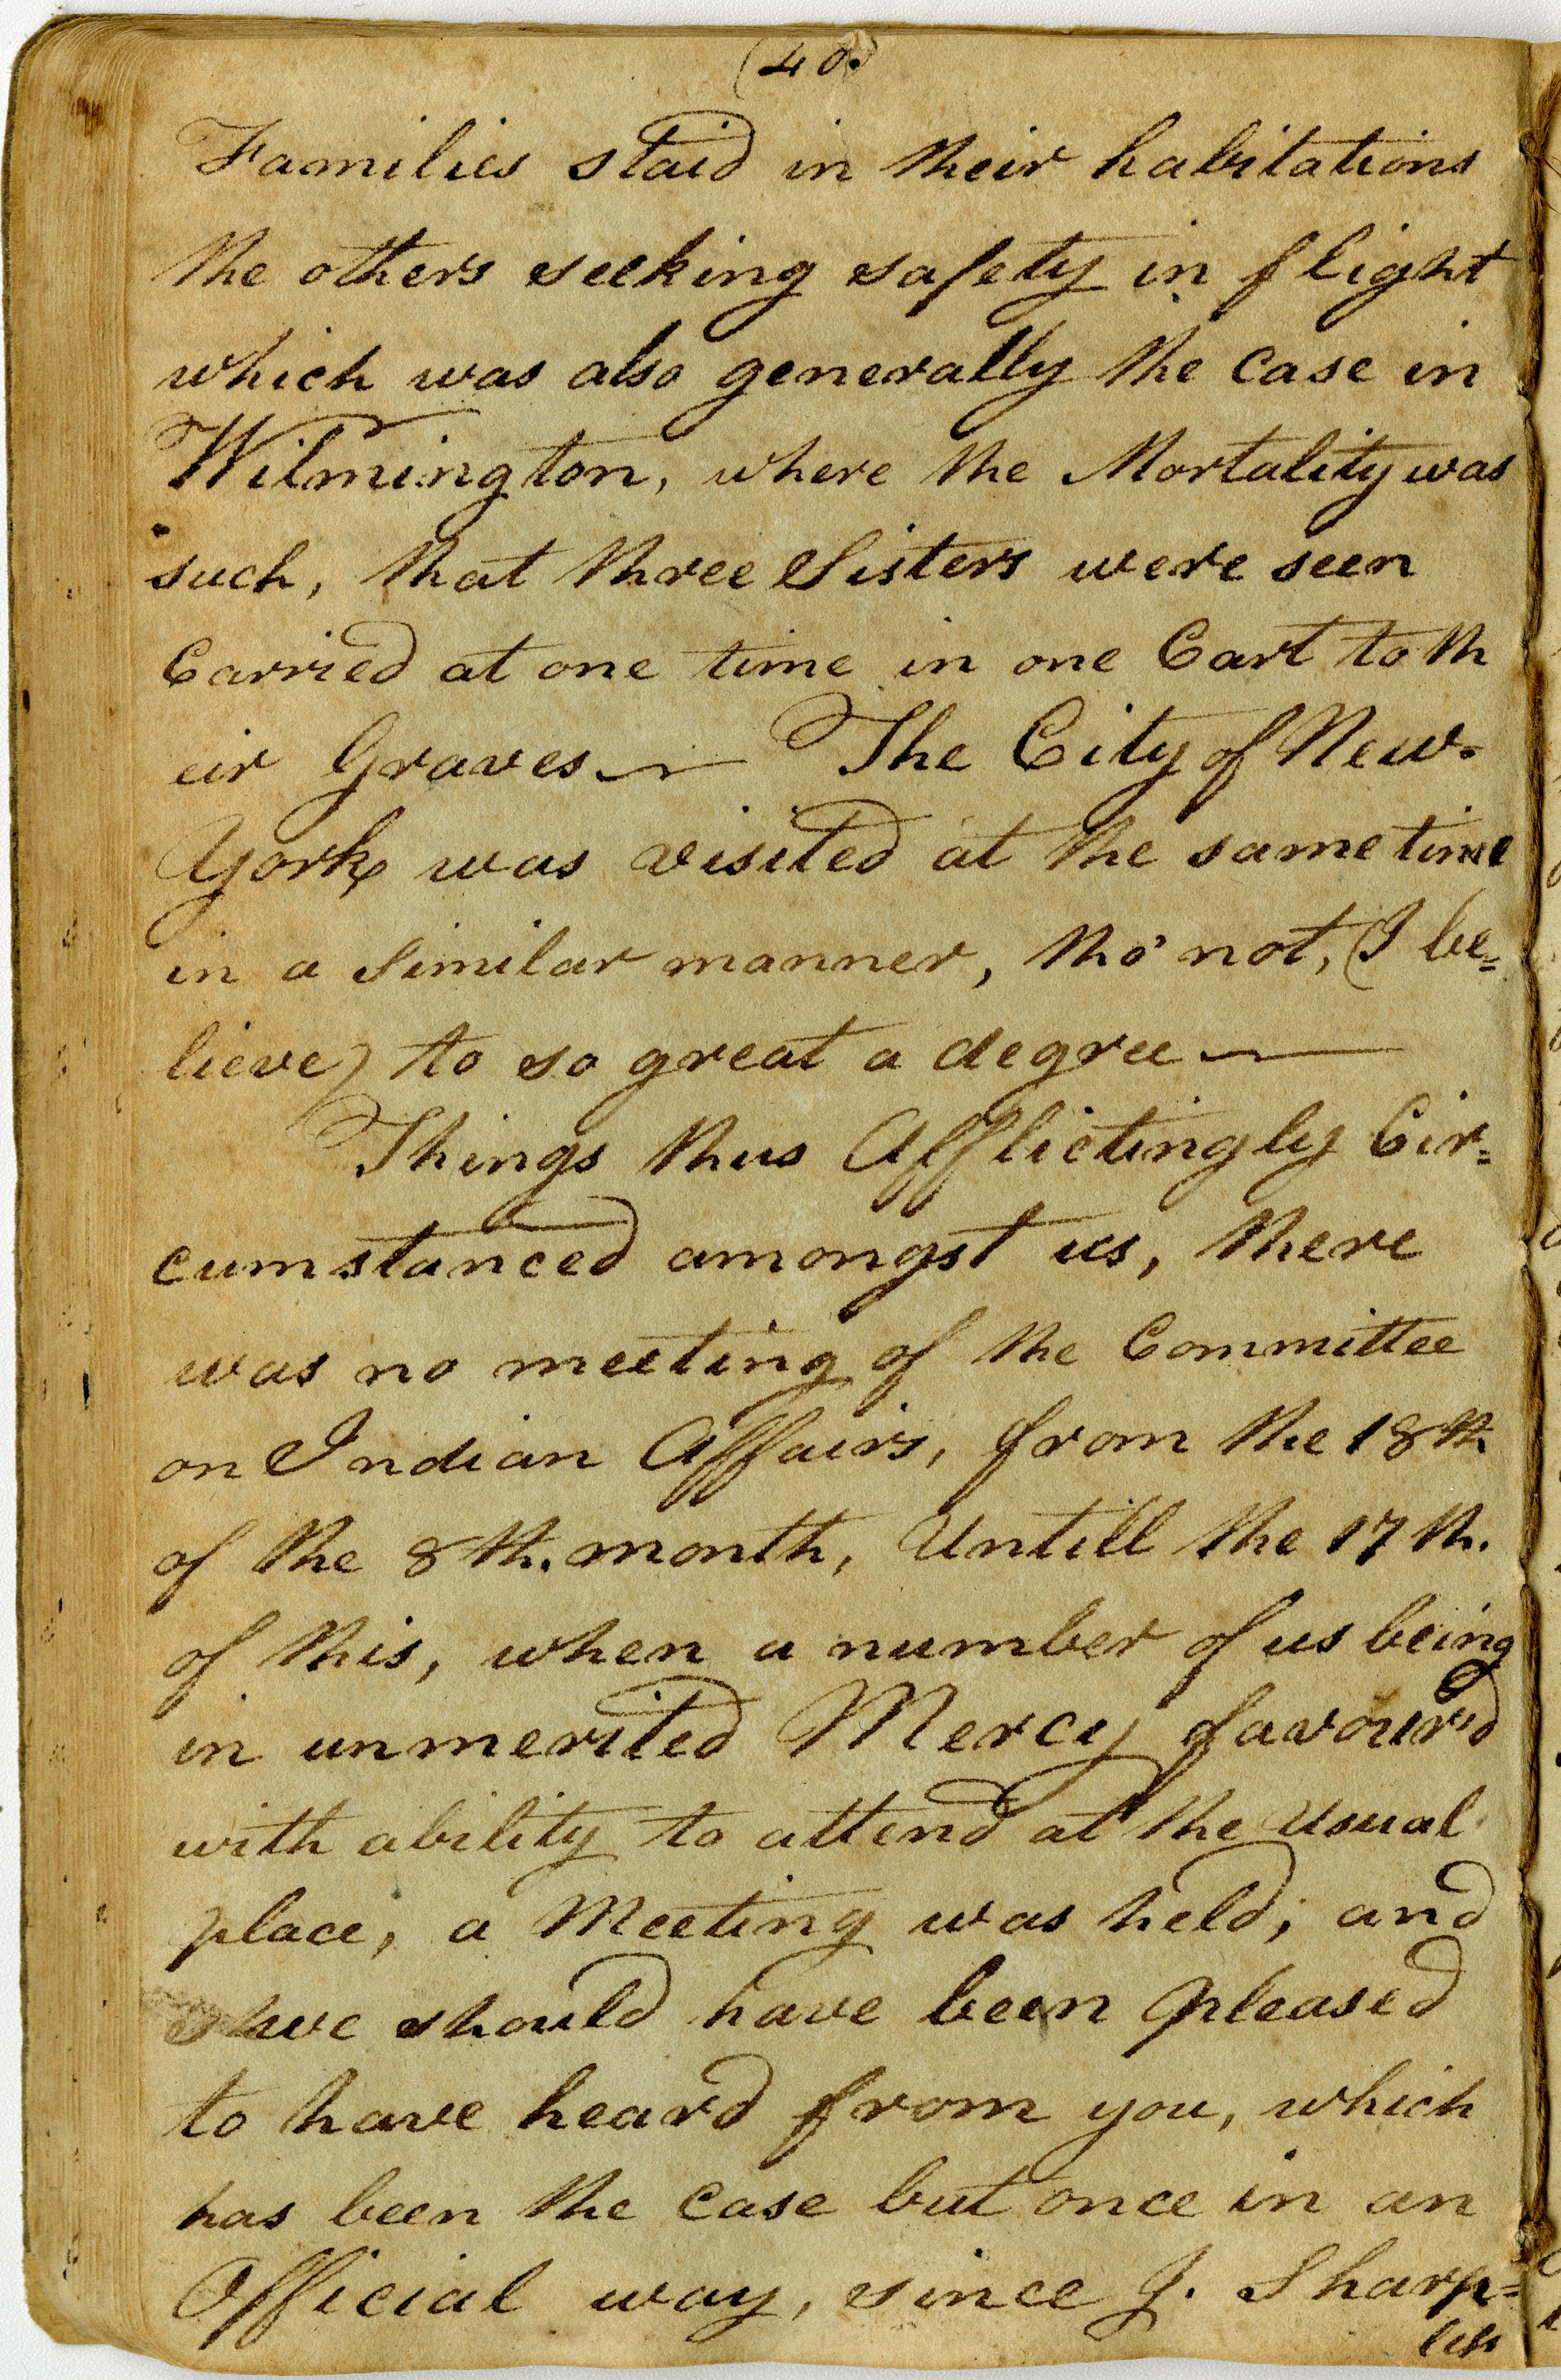 (40.)
Families staid in their habitations
the others seeking safety in flight
which was also generally the case in
Wilmington, where the Mortality was
such, that three Sisters were seen
Carried at one time in one Cart to th
eir Graves — The City of New-
York was visited at the same time
in a similar manner, tho' not, (I be=
lieve) to so great a degree —
Things thus Afflictingly Cir=
cumstanced amongst us, there
was no meeting of the Committee
on Indian Affairs, from the 18th
of the 8th. month, Untill the 17th.
of this, when a number of us being
in unmerited Mercy favour'd
with ability to attend at the Usual
place, a Meeting was held; and
we should have been pleased
to have heard from you, which
has been the Case but once in an
Official way, since J. Sharp=
les